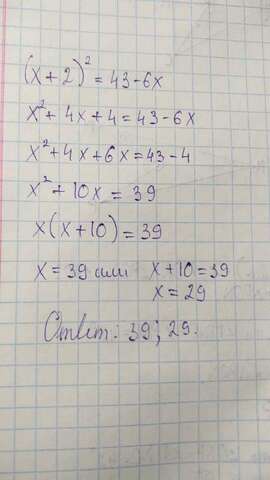 (x+2)² = 43-6x
x²+4x+4=43-6x
x²+4x+6x=43-4
x²+10x = 39
x(x+10)=39
x=39 или x+10=39
x=29
Ответ: 39; 29.